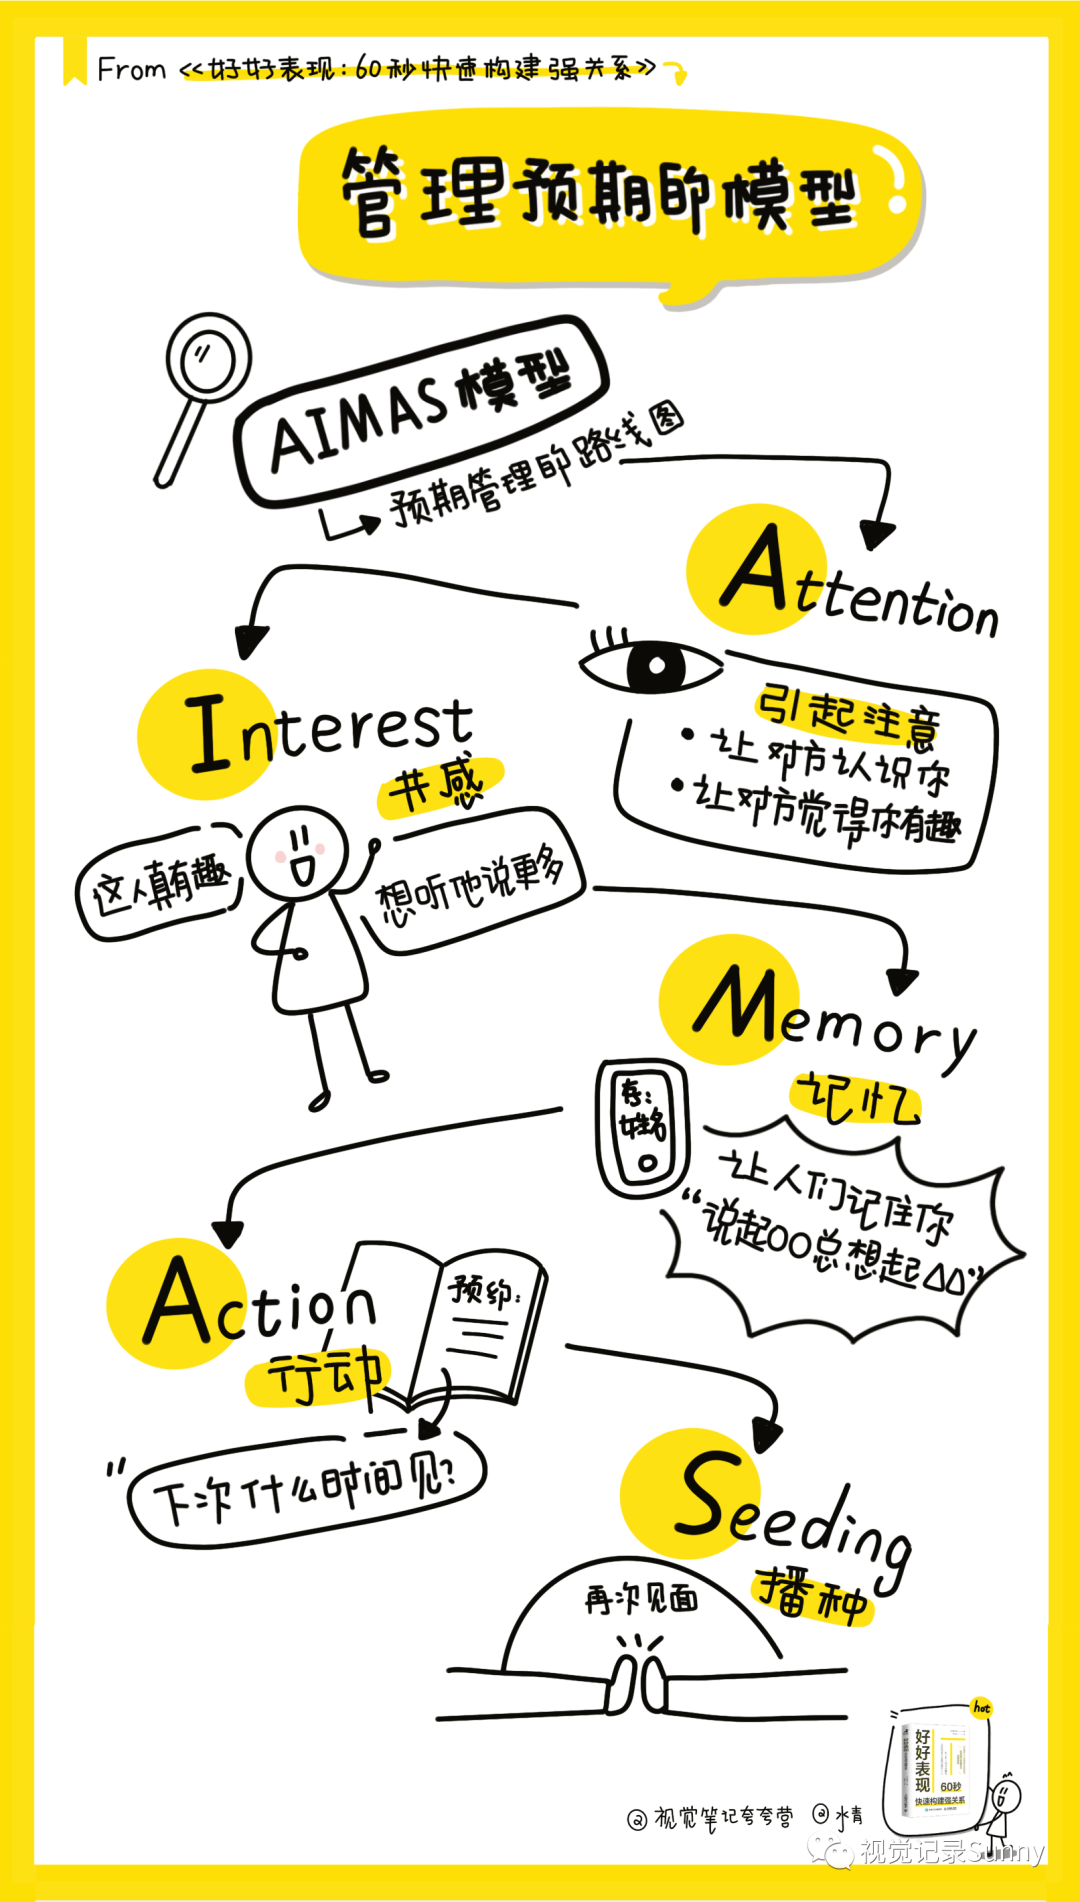 From 《好好表现:60秒快速构建强关系》
管理预期的模型
AIMAS模型
预期管理的路线图
Attention
引起注意
• 让对方认识你
• 让对方觉得你有趣
Interest
共感
这人真有趣
想听他说更多
Memory
记忆
存:
姓名
让人们记住你
“说起〇〇总想起△△”
Action
行动
预约:
"下次什么时间见?
Seeding
播种
再次见面
hot
好好表现
60秒
快速构建强关系
@视觉笔记夸夸营 @水青
视觉记录Sunny